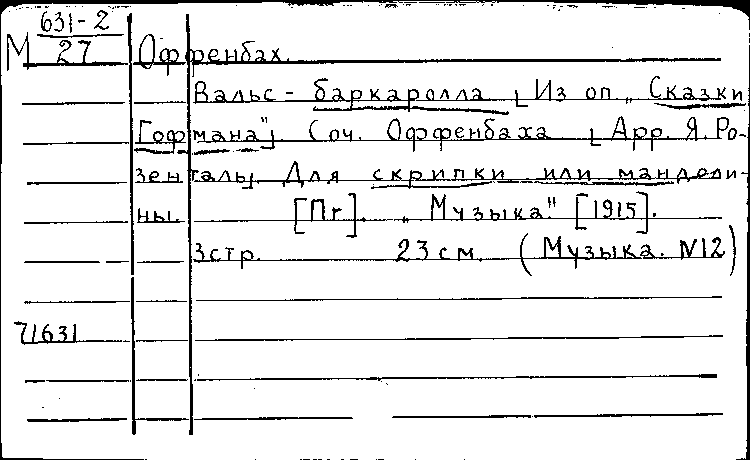 М 631-2
27
Оффенбах.
Вальс - баркаролла [Из оп. „Сказки
Гофмана"] Соч. Оффенбаха [Арр. Я. Ро-
зенталь] Для скрипки или мандоли-
ны. [Пг]. „Музыка." [1915].
3стр. 23 см. (Музыка. N12)
71631